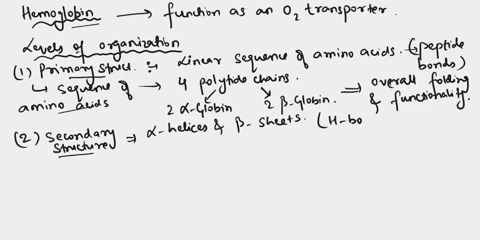 Hemoglobin → function as an O2 transporter.
Levels of organization
(1) Primary struct. :- Linear sequence of amino acids. (peptide bonds)
↳ sequence of amino acids → 4 polytide chains. ⇒ overall folding & functionality.
2 α-Globin 2 β-Globin.
(2) Secondary structure ⇒ α-helices & β-sheets. (H-bo